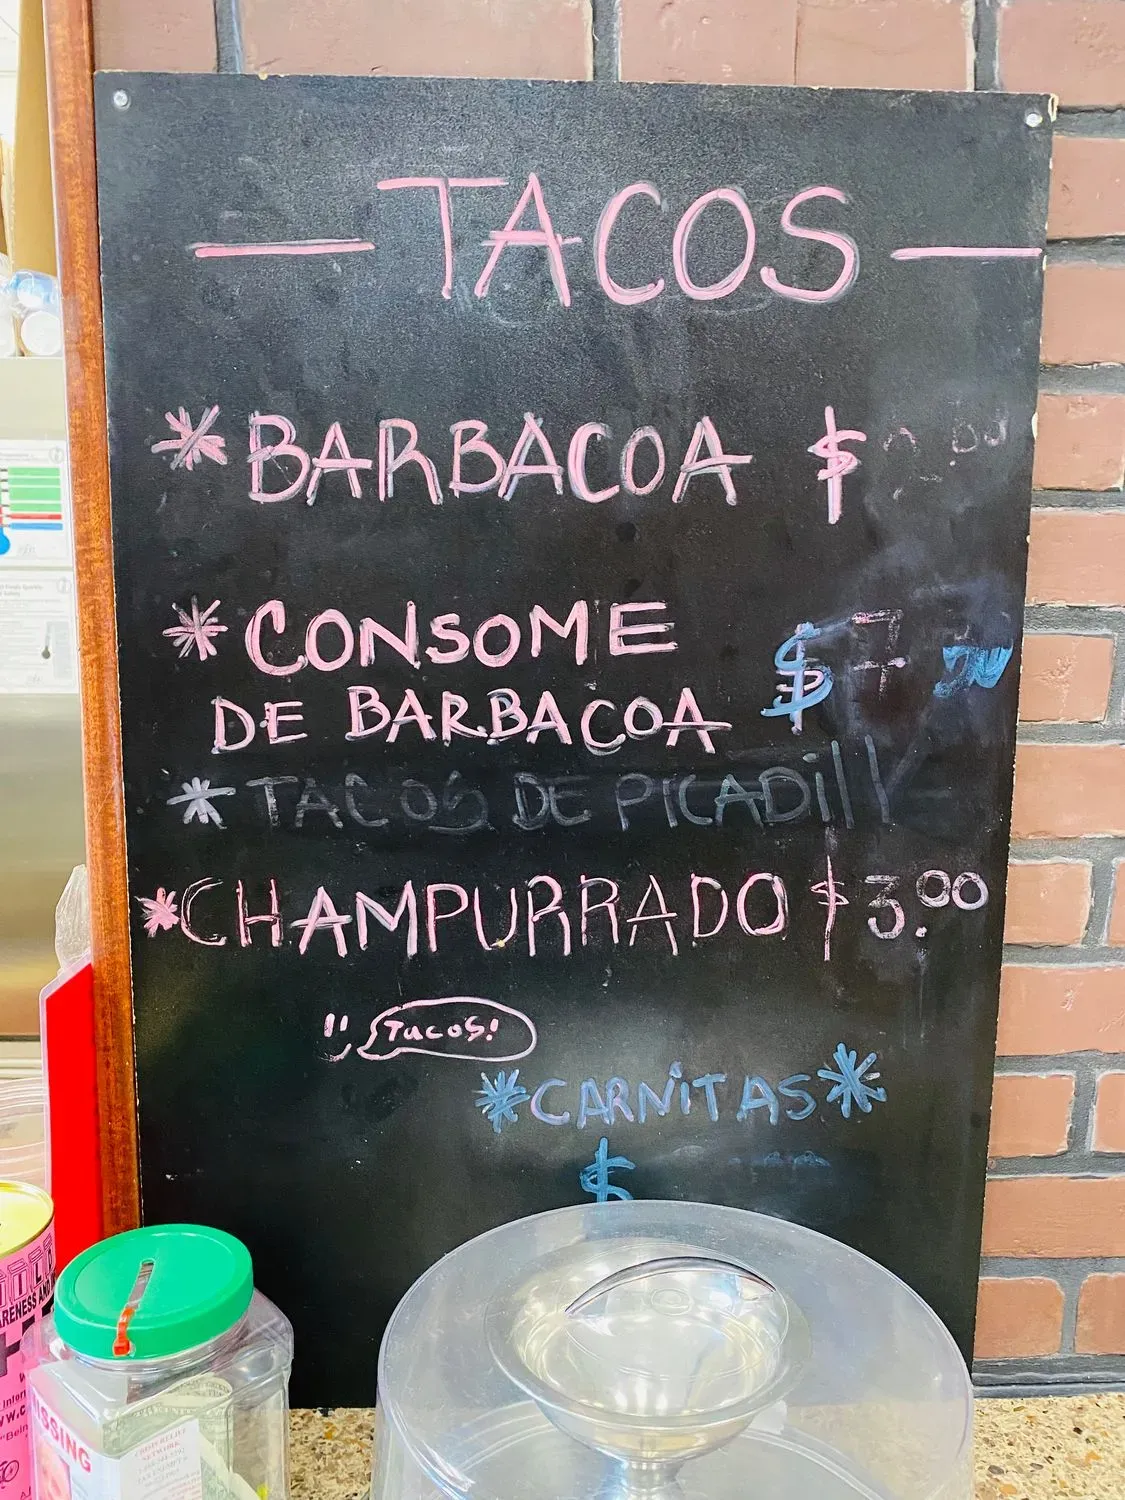 — TACOS —
*BARBACOA $
*CONSOME
DE BARBACOA $7
*TACOS DE PICADill
*CHAMPURRADO $3.00
Tacos!
*CARNITAS*
$
MISSING
CRISIS RELIEF
NETWORK